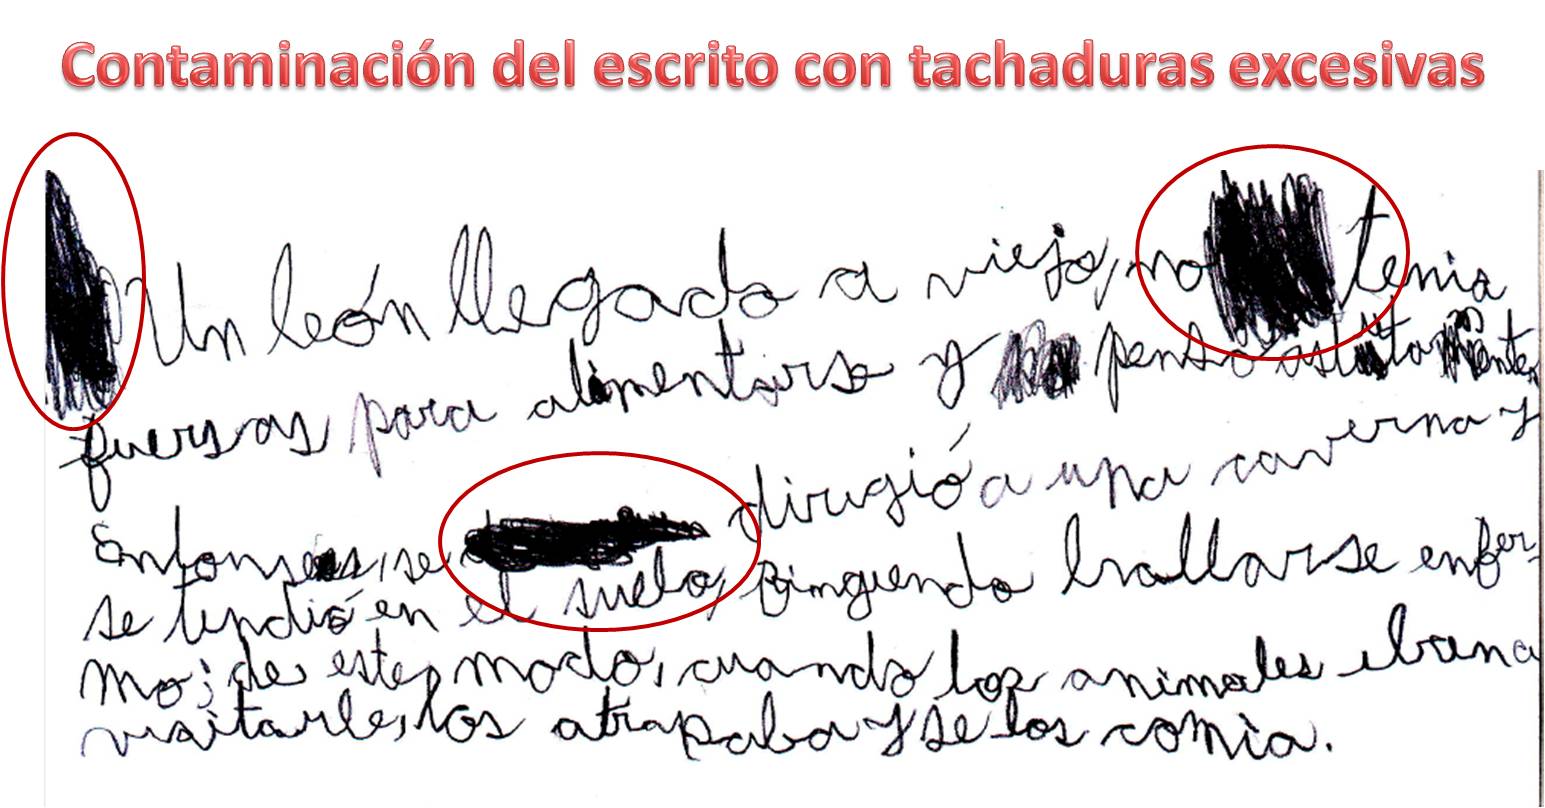 Contaminación del escrito con tachaduras excesivas
Un león llegado a viejo, no tenia
fuersas para alimentarse y pensó astutamente,
Entonses, se dirugió a una caverna y
se tendió en el suelo, finguendo hallarse enfer-
mo; de este modo, cuando los animales ibana
visitarle, los atrapaba y se los comia.